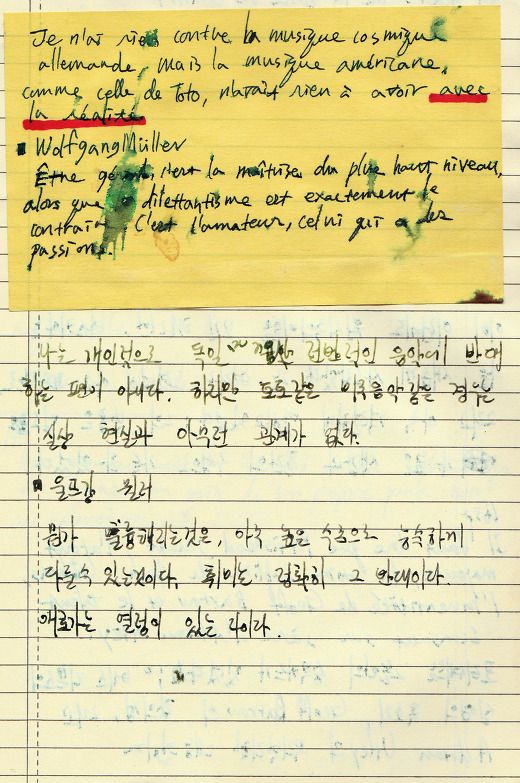 Je n'ai rien contre la musique cosmique
allemande, mais la musique américaine,
comme celle de Toto, n'avait rien à avoir avec
la réalité
▪ Wolfgang Müller
Être génial, c'est la maîtrise du plus haut niveau,
alors que dilettantisme est exactement le
contraire. C'est l'amateur, celui qui a des
passions.
나는 개인적으로 독일 음악에 반대
하는 편이 아니다. 하지만 토토같은 미국음악같은 경우는
실상 현실과 아무런 관계가 없다.
▪ 울프강 뮐러
훌륭하다는것은, 아주 높은 수준으로 능숙하게
다룰수 있는것이다. 취미는 정확히 그 반대이다.
애호가는 열정이 있는 자이다.